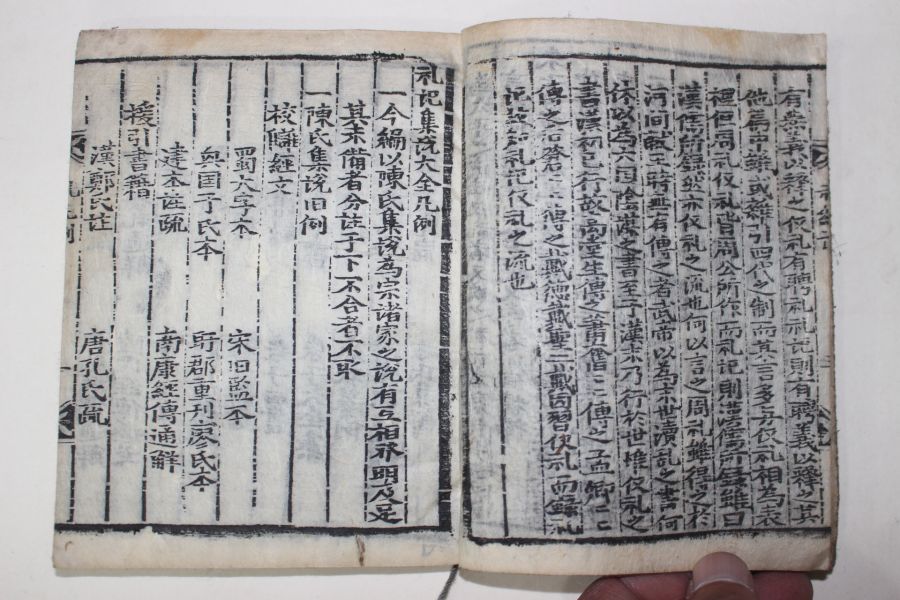 有燕義以釋之仪礼有聘礼礼記則有聘義以釋之其
他篇中雖或雜引四代之制而其言多与仪礼相為表
裡但周礼仪礼皆周公所作而礼記則漢儒所録雖曰
漢儒所録然亦仪礼之流也何以言之周礼雖得之於
河间献王時無有傳之者武帝以為末世瀆乱之書何
休以為六囯陰謀之書至于漢末乃行於世惟仪礼之
書漢初已行故高堂生傳之萧奮〻〻傳之孟卿〻〻
傳之后蒼〻〻傳之戴德戴聖二戴因習仪礼而録礼
記故知礼記仪礼之流也
礼記集説大全凡例
一今編以陳氏集説為宗諸家之説有互相發明及足
其未備者分註于下不合者不取
一陳氏集説旧例
校讎経文
蜀大字本 宋旧監本
興囯于氏本 盱郡重刊廖氏本
建本註疏 南康経傳通解
援引書籍
漢鄭氏註 唐孔氏疏